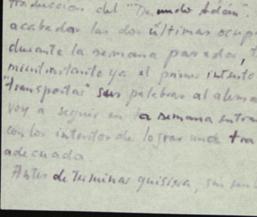 traducción del "Desnudo Adán".
acabadas las dos últimas
durante la semana pasada,
ya el primer intento
"transportar" sus palabras al
voy a seguir en la semana
con los intentos de lograr una
adecuada.
Antes de terminar quisiera, sin